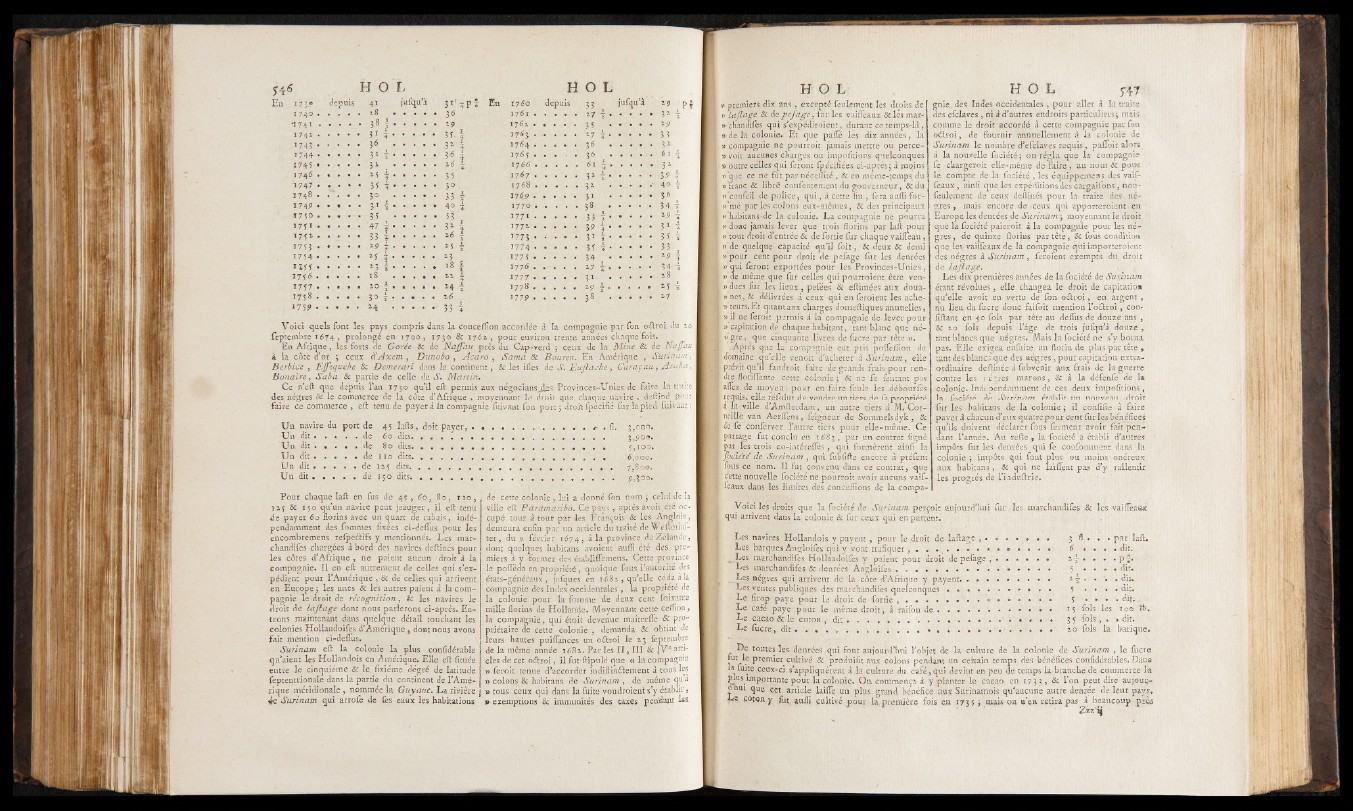 546 HOL HOL
En 1739 depuis 41 juſqu'à 31
1740 . . . . . 28 . . . . . 36
1741 . . . . . 38 . . . . . 29
1742 . . . . . 31 . . . . . 35
1743 . . . . . 36 . . . . . 32
1744 . . . . . 31 . . . . . 36
1745 . . . . . 32 . . . . . 26
1746 . . . . . 25 . . . . . 35
1747 . . . . . 35 . . . . . 30
1748 . . . . . 30 . . . . . 33
1749 . . . . . 31 . . . . . 40
1750 . . . . . 35 . . . . . 53
1751 . . . . . 47 . . . . . 32
1752 . . . . . 33 . . . . . 26
1753 . . . . . 29 . . . . . 25
1754 . . . . . 25 . . . . . 23
1755 . . . . . 23 . . . . . 18
1756 . . . . . 18 . . . . . 22
1757 . . . . . 20 . . . . . 24
1758 . . . . . 30 . . . . . 26
1759 . . . . . 24 . . . . . 33
En 1760 depuis 33 juſqu'à 29
1761 . . . . . 27 . . . . . 32
1762 . . . . . 35 . . . . . 29
1763 . . . . . 27 . . . . . 33
1764 . . . . . 36 . . . . . 32
1765 . . . . . 36 . . . . . 61
1766 . . . . . 61 . . . . . 32
1767 . . . . . 32 . . . . . 39
1768 . . . . . 32 . . . . . 40
1769 . . . . . 31 . . . . . 36
1770 . . . . . 38 . . . . . 34
1771 . . . . . 33 . . . . . 29
1772 . . . . . 39 . . . . . 31
1773 . . . . . 31 . . . . . 35
1774 . . . . . 35 . . . . . 33
1775 . . . . . 34 . . . . . 29
1776 . . . . . 27 . . . . . 34
1777 . . . . . 31 . . . . . 28
1778 . . . . . 29 . . . . . 25
1779 . . . . . 38 . . . . . 27
Voici quels ſont les pays compris dans la conceſſion accordée à la compagnie par ſon octroi du 20
ſeptembre 1674, prolongé en 1700, 1730 & 1762, pour environ trente années chaque fois.
En Afrique, les forts de Gorée & de Naſſau près du Cap-verd ; ceux de la Mine & de Naſſau
à la côte d'or ; ceux d'Axem, Dunobo, Acara, Sama & Bouren. En Amérique, Surinam,
Berbice, Eſſequebe & Demerari dans le continent, & les iſles de S. Euſtache, Curaçau, Aruba,
Bonaire, Saba & partie de celle de S. Martin.
Ce n'eſt que depuis l'an 1730 qu'il eſt permis aux négocians des Provinces-Unies de faire la traite
des négres & le commerce de la côte d'Afrique, moyennant le droit que chaque navire, deſtiné pour
faire ce commerce, eſt tenu de payer à la compagnie ſuivant ſon port ; droit ſpécifié ſur le pied ſuivant :
Un navire du port de 45 laſts, doit payer, . . . . . . . . fl. 3,000.
Un dit . . . . . de 60 dits. . . . . . . . . . 3,900.
Un dit . . . . . de 80 dits. . . . . . . . . . 5,100.
Un dit . . . . . de 110 dits. . . . . . . . . . 6,000.
Un dit . . . . . de 125 dits. . . . . . . . . . 7,800.
Un dit . . . . . de 150 dits. . . . . . . . . . 9,300.
Pour chaque laſt en ſus de 45, 60, 80, 110,
125 & 150 qu'un navire peut jeauger, il eſt tenu
de payer 60 florins avec un quart de rabais, indé-
pendamment des ſommes fixées ci-deſſus pour les
encombremens reſpectifs y mentionnés. Les mar-
chandiſes chargées à bord des navires deſtinés pour
les côtes d'Afrique, ne paient aucun droit à la
compagnie. Il en eſt autrement de celles qui s'ex-
pédient pour l'Amérique, & de celles qui arrivent
en Europe ; les unes & les autres paient à la com-
pagnie le droit de récognition, & les navires le
droit de laſtage dont nous parlerons ci-après. En-
trons maintenant dans quelque détail touchant les
colonies Hollandoiſes d'Amérique, dont nous avons
fait mention ci-deſſus.
Surinam eſt la colonie la plus conſidérable
qu'aient les Hollandois en Amérique. Elle eſt ſituée
entre le cinquième & le ſixième dégré de latitude
ſeptentrionale dans la partie du continent de l'Amé-
rique méridionale, nommée la Guyane. La rivière
de Surinam qui arroſe de ſes eaux les habitations
de cette colonie, lui a donné ſon nom ; celui de la
ville eſt Paramaribo. Ce pays, après avoir été oc-
cupé tour à tour par les François & les Anglois,
demeura enfin par un article du traité de Weſtminſ-
ter, du 9 février 1674, à la province de Zélande,
dont quelques habitans avoient auſſi été des pre-
miers à y former des établiſſemens. Cette province
le poſſéda en propriété, quoique ſous l'autorité des
états-généraux, juſques en 1682, qu'elle céda à la
compagnie des Indes occidentales, la propriété de
la colonie pour la ſomme de deux cent ſoixante
mille florins de Hollande. Moyennant cette ceſſion,
la compagnie, qui étoit devenue maitreſſe & pro-
priétaire de cette colonie, demanda & obtint de
leurs hautes puiſſances un octroi le 23 ſeptembre
de la même année 1682. Par les II, III & IVᵉ arti-
cles de cet octroi, il fut ſtipulé que « la compagnie
» ſeroit tenue d'accorder indiſtinctement à tous les
» colons & habitans de Surinam, de même qu'à
» tous ceux qui dans la ſuite voudroient s'y établir,
» exemptions & immunités des taxes pendant les
HOL HOL 547
» premiers dix ans, excepté ſeulement les droits de
» laſtage & de peſage, ſur les vaiſſeaux & les mar-
» chandiſes qui s'expédieroient, durant ce temps-là,
» de la colonie. Et que paſſé les dix années, la
» compagnie ne pourroit jamais mettre ou perce-
» voir aucunes charges ou impoſitions quelconques
» outre celles qui ſeront ſpécifiées ci-après ; à moins
» que ce ne fût par néceſſité, & en même-temps du
» franc & libre conſentement du gouverneur, & du
» conſeil de police, qui, à cette fin, ſera auſſi for-
» mé par les colons eux-mêmes, & des principaux
» habitans de la colonie. La compagnie ne pourra
» donc jamais lever que trois florins par laſt pour
» tout droit d'entrée & de ſortie ſur chaque vaiſſeau,
» de quelque capacité qu'il ſoit, & deux & demi
» pour cent pour droit de peſage ſur les denrées
» qui ſeront exportées pour les Provinces-Unies,
» de même que ſur celles qui pourroient être ven-
» dues ſur les lieux, peſées & eſtimées aux doua-
» nes, & délivrées à ceux qui en feroient les ache-
» teurs. Et quant aux charges domeſtiques annuelles,
» il ne ſeroit permis à la compagnie de lever pour
» capitation de chaque habitant, tant blanc que né-
» gre, que cinquante livres de ſucre par tête ».
Après que la compagnie eut pris poſſeſſion du
domaine qu'elle venoit d'acheter à Surinam, elle
prévit qu'il faudroit faire de grands frais pour ren-
dre floriſſante cette colonie ; & ne ſe ſentant pas
aſſez de moyens pour en faire ſeule les débourſés
requis, elle réſolut de vendre un tiers de ſa propriété
à la ville d'Amſterdam, un autre tiers à M. Cor-
neille van Aerſſens, ſeigneur de Sommelsdyk, &
de ſe conſerver l'autre tiers pour elle-même. Ce
partage fut conclu en 1683, par un contrat ſigné
par les trois co-intéreſſés, qui formèrent ainſi la
ſociété de Surinam, qui ſubſiſte encore à préſent
ſous ce nom. Il fut convenu dans ce contrat, que
cette nouvelle ſociété ne pourroit avoir aucuns vaiſ-
ſeaux dans les limites des conceſſions de la compa-
gnie des Indes occidentales, pour aller à la traite
des eſclaves, ni à d'autres endroits particuliers ; mais
comme le droit accordé à cette compagnie par ſon
octroi, de fournir annuellement à la colonie de
Surinam le nombre d'eſclaves requis, paſſoit alors
à la nouvelle ſociété ; on régla que la compagnie
ſe chargeroit elle-même de faire, au nom & pour
le compte de la ſociété, les équippemens des vaiſ-
ſeaux, ainſi que les expéditions des cargaiſons, non-
ſeulement de ceux deſtinés pour la traite des né-
gres, mais encore de ceux qui apporteroient en
Europe les denrées de Surinam ; moyennant le droit
que la ſociété paieroit à la compagnie pour les né-
gres, de quinze florins par tête, & ſous condition
que les vaiſſeaux de la compagnie qui importeroient
des négres à Surinam, ſeroient exempts du droit
de laſtage.
Les dix premières années de la ſociété de Surinam
étant révolues, elle changea le droit de capitation
qu'elle avoit en vertu de ſon octroi, en argent,
au lieu du ſucre dont faiſoit mention l'octroi, con-
ſiſtant en 50 ſols par tête au deſſus de douze ans,
& 20 ſols depuis l'âge de trois juſqu'à douze,
tant blancs que négres. Mais la ſociété ne s'y borna
pas. Elle exigea enſuite un florin de plus par tête,
tant des blancs que des négres, pour capitation extra-
ordinaire deſtinée à ſubvenir aux frais de la guerre
contre les négres marons, & à la défenſe de la
colonie. Indépendamment de ces deux impoſitions,
la ſociété de Surinam établit un nouveau droit
ſur les habitans de la colonie ; il conſiſte à faire
payer à chacun d'eux quatre pour cent ſur les bénéfices
qu'ils doivent déclarer ſous ſerment avoir fait pen-
dant l'année. Au reſte, la ſociété a établi d'autres
impôts ſur les denrées qui ſe conſomment dans la
colonie ; impôts qui ſont plus ou moins onéreux
aux habitans, & qui ne laiſſent pas d'y rallentir
les progrès de l'induſtrie.
Voici les droits que la ſociété de Surinam perçoit aujourd'hui ſur les marchandiſes & les vaiſſeaux
qui arrivent dans la colonie & ſur ceux qui en partent.
Les navires Hollandois y payent, pour le droit de laſtage, . . . . . . . 3 fl. . . . par laſt.
Les barques Angloiſes qui y vont trafiquer, . . . . . . . 6 . . . . dit.
Les marchandiſes Hollandoiſes y paient pour droit de peſage, . . . . . . . 2½ . . . . p
Les marchandiſes & denrées Angloiſes . . . . . . . 5 . . . . dit.
Les négres qui arrivent de la côte d'Afrique y payent. . . . . . . 2½ . . . . dit.
Les ventes publiques des marchandiſes quelconques . . . . . . . 5 . . . . dit.
Le ſirop paye pour le droit de ſortie, . . . . . . . 5 . . . . dit.
Le café paye pour le même droit, à raiſon de . . . . . . . 15 ſols les 100 ℔.
Le cacao & le coton, dit . . . . . . . 35 ſols, . . dit.
Le ſucre, dit . . . . . . . 20 ſols la barique.
De toutes les denrées qui ſont aujourd'hui l'objet de la culture de la colonie de Surinam, le ſucre
fut le premier cultivé & produiſit aux colons pendant un certain temps des bénéfices conſidérables. Dans
la ſuite ceux-ci s'appliquèrent à la culture du café, qui devint en peu de temps la branche de commerce la
plus importante pour la colonie. On commença à y planter le cacao en 1733, & l'on peut dire aujour-
d'hui que cet article laiſſe un plus grand bénéfice aux Surinamois qu'aucune autre denrée de leur pays.
Le coton y fut auſſi cultivé pour la première fois en 1735 ; mais on n'en retira pas à beaucoup près
Zzz ij